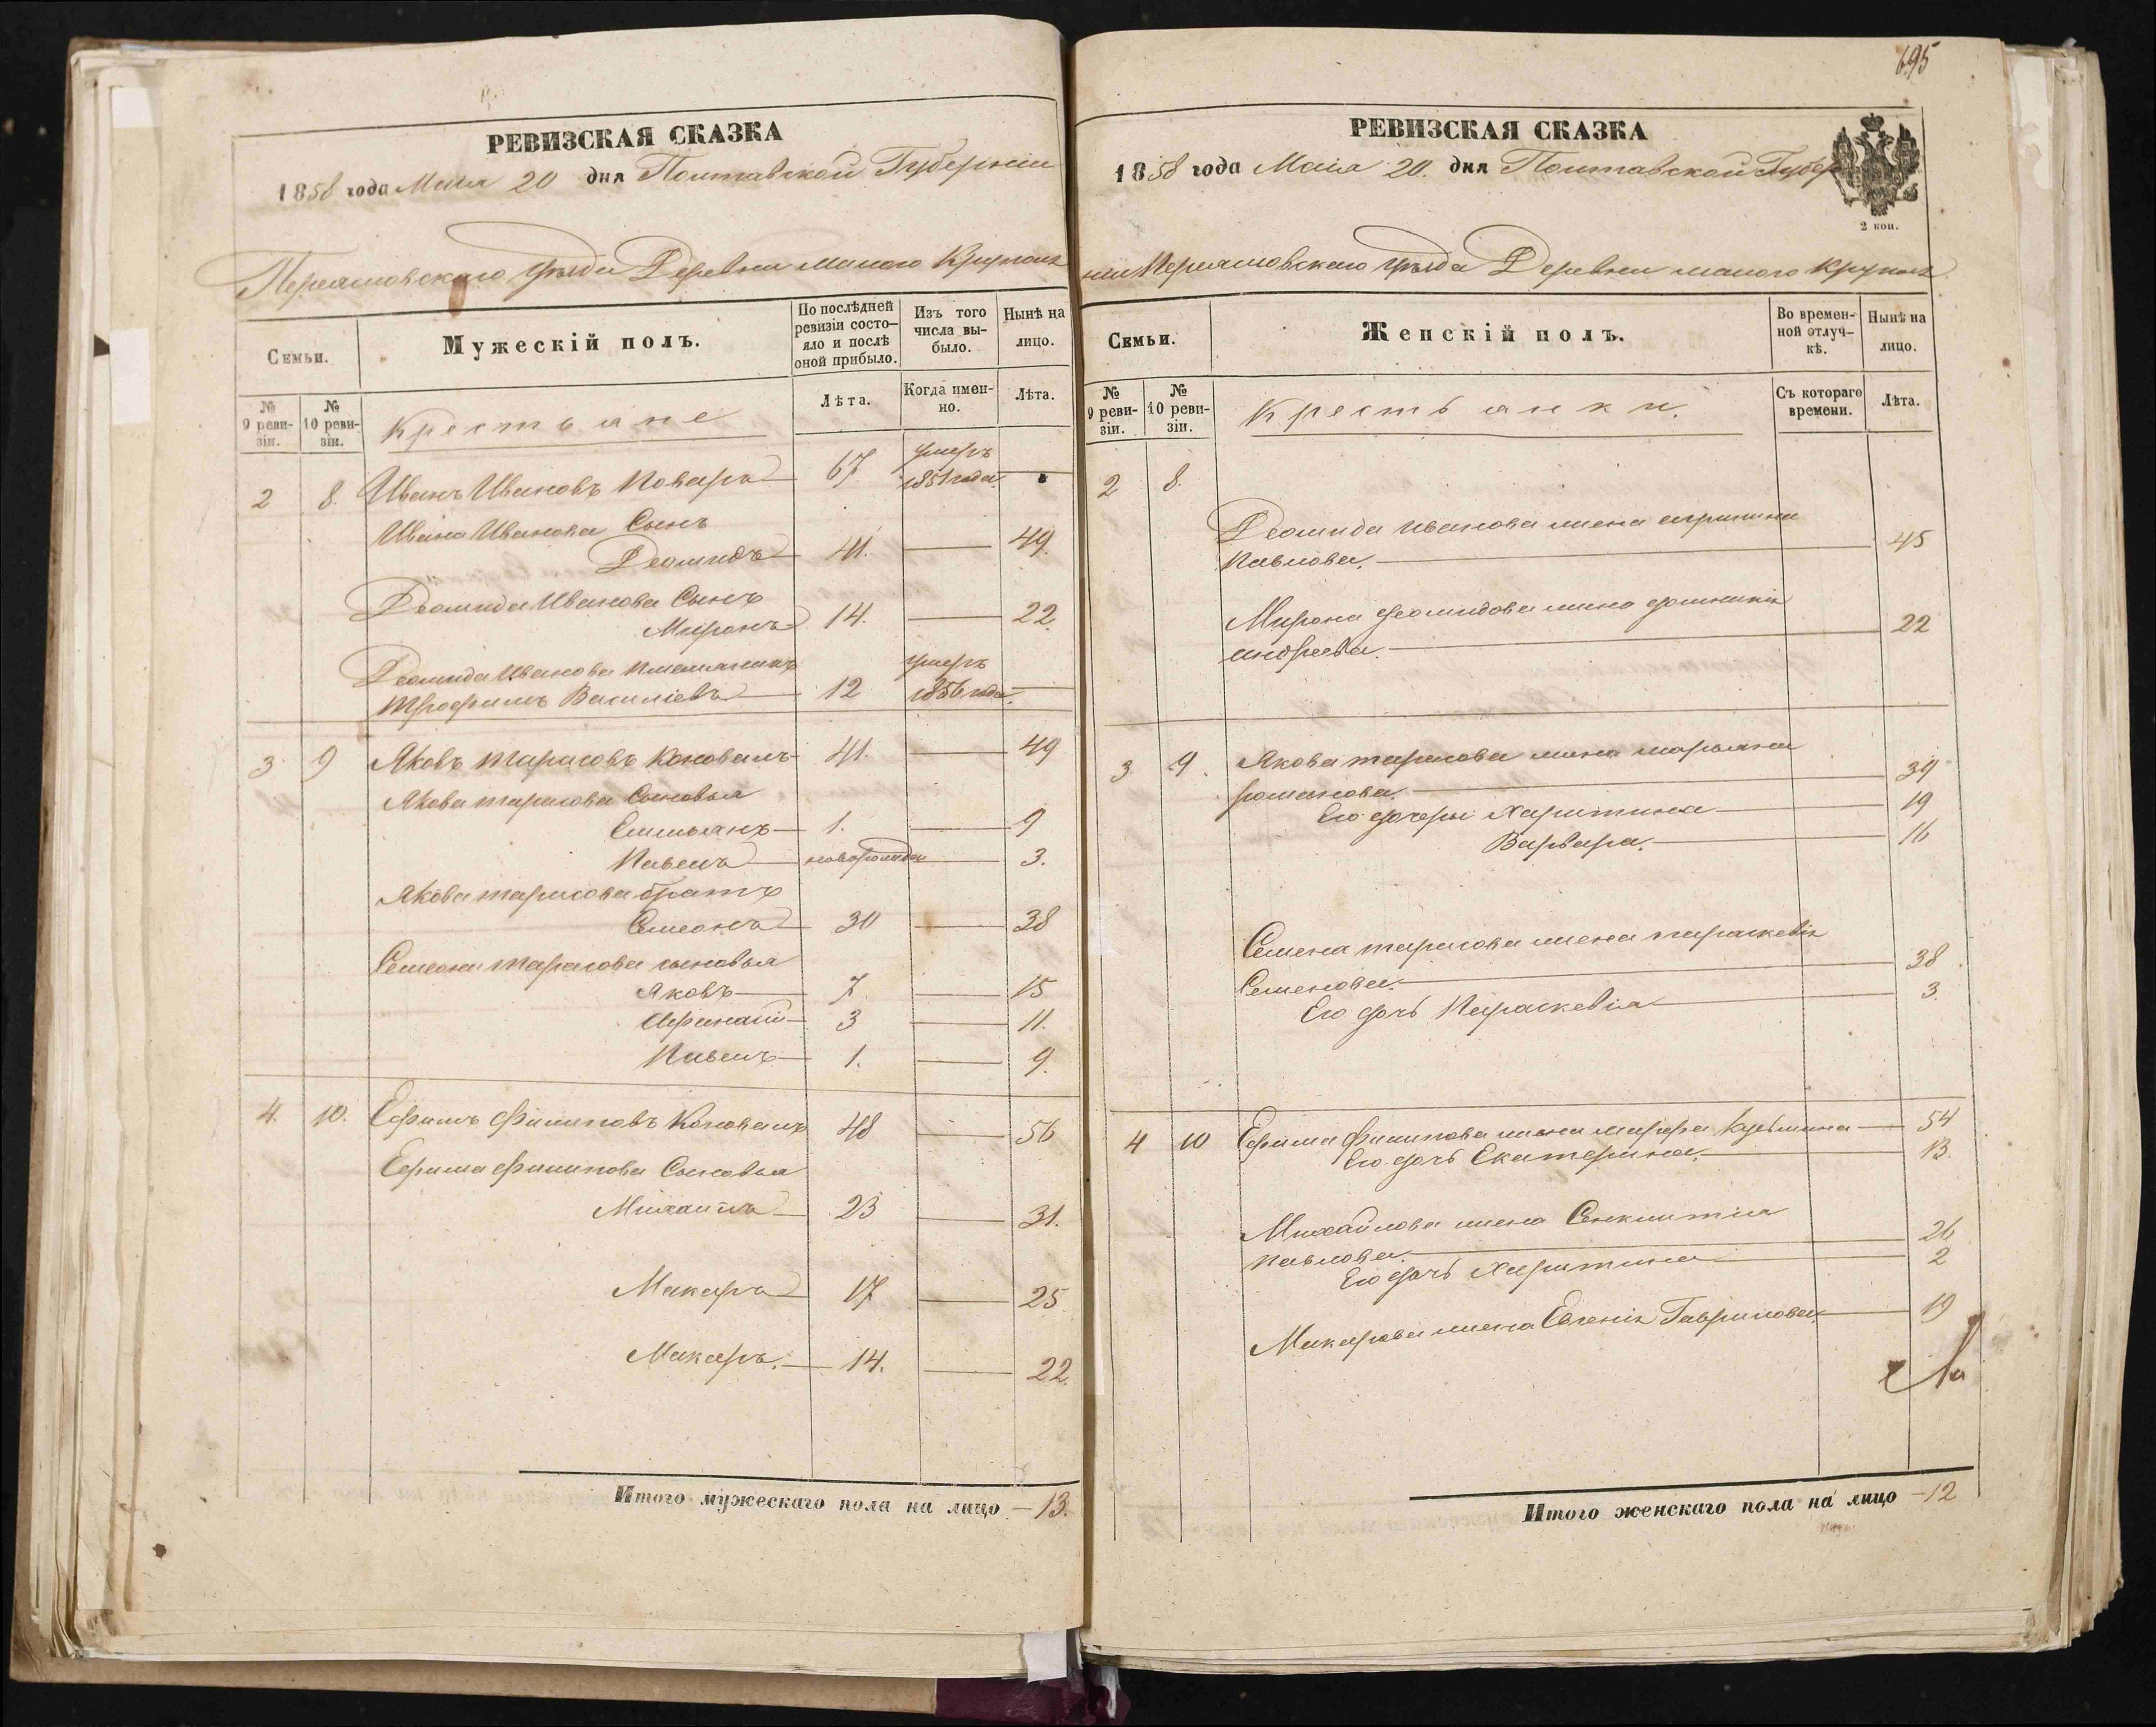 РЕВИЗСКАЯ СКАЗКА
1858 года Маiя 20 дня Полтавской Губернiи
Переясловскаго уѣзда Деревни Малого Круполѧ
Семьи.
Мужескiй полъ.
По послѣдней ревизiи состо-
яло и послѣ оной прибыло.
Изъ того числа вы-
было.
Нынѣ на лицо.
№ 9 реви-
зiи.
№ 10 реви-
зiи.
Крестьяне
Лѣта.
Когда имен-
но.
Лѣта.
2 8. Иванъ Ивановъ Коваръ 67 умеръ 1851 года
Ивана Иванова Сынъ
Деомидъ 41. 49.
Деомида Иванова Сынъ
Миронъ 14. 22.
Деомида Иванова племянникъ умеръ
Трофимъ Василiевъ 12 1856 года.
3 9 Яковъ Тарасовъ Коновалъ 41. 49
Якова Тарасова Сыновья
Емельянъ 1. 9
Павелъ новорожден 3.
Якова Тарасова братъ
Семенъ 30 38
Семена Тарасова сыновья
Яковъ 7 15
Афанасiй 3 11.
Павелъ 1. 9.
4. 10. Ефимъ Филиповъ Коновалъ 48 56
Ефима Филипова Сыновья
Михаилъ 23 31.
Макаръ 17 25
Макаръ. 14. 22.
Итого мужескаго пола на лицо 13.
695
РЕВИЗСКАЯ СКАЗКА
1858 года Маiя 20. дня Полтавской Губер
2 коп.
нiи Переясловскаго уѣзда Деревни малого Круполѧ
Семьи.
Женскiй полъ.
Во времен-
ной отлуч-
кѣ.
Нынѣ на лицо.
№ 9 реви-
зiи.
№ 10 реви-
зiи.
Крестьянки.
Съ котораго времени.
Лѣта.
2 8.
Деомида Иванова жена агрипина
Павлова. 45
Мирона Деомидова жена доминикiя
андреева. 22
3 9. Якова тарасова жена марьяна
романова. 39
Его дочери Харитина 19
Варвара. 16
Семена тарасова жена параскевiя
Семенова. 38
Его дочь Параскевiя 3.
4 10 Ефима Филипова жена марфа Кузьмина 54
Его дочь Екатерина. 13.
Михайлова жена Синклитiя
павлова. 26
Его дочь Харитина 2
Макарова жена Евгенiя Гаврилова 19
Итого женскаго пола на лицо 12